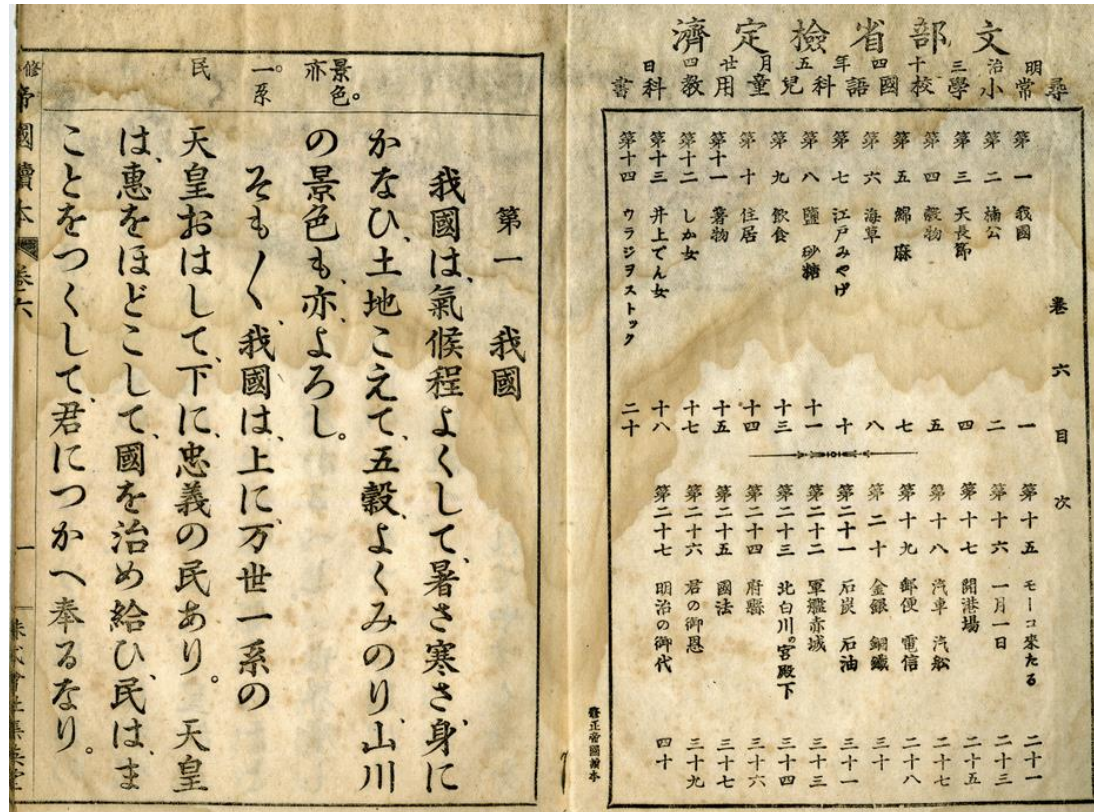 文部省檢定濟
明治三十四年五月廿四日
尋常小學校國語科兒童用教科書
卷六目次
第一 我國 一
第二 楠公 二
第三 天長節 四
第四 穀物 五
第五 綿 麻 七
第六 海草 八
第七 江戸みやげ 十
第八 鹽 砂糖 十一
第九 飲食 十三
第十 住居 十四
第十一 著物 十五
第十二 しか女 十七
第十三 井上でん女 十八
第十四 ウラジヲストック 二十
第十五 モーコ來たる 二十一
第十六 一月一日 二十三
第十七 開港場 二十五
第十八 汽車 汽船 二十七
第十九 郵便 電信 二十八
第二十 金銀 銅鐵 三十
第二十一 石炭 石油 三十一
第二十二 軍艦赤城 三十三
第二十三 北白川の宮殿下 三十四
第二十四 府縣 三十六
第二十五 國法 三十七
第二十六 君の御恩 三十九
第二十七 明治の御代 四十
修正帝國讀本
景色。
亦
一系。
民
第一 我國
我國は、氣候程よくして、暑さ寒さ身に
かなひ、土地こえて、五穀よくみのり、山川
の景色も、亦、よろし。
そも〱、我國は、上に、万世一系の
天皇おはして、下に、忠義の民あり。天皇
は、惠をほどこして、國を治め給ひ、民は、ま
ことをつくして、君につかへ奉るなり。
帝國讀本 卷六
一